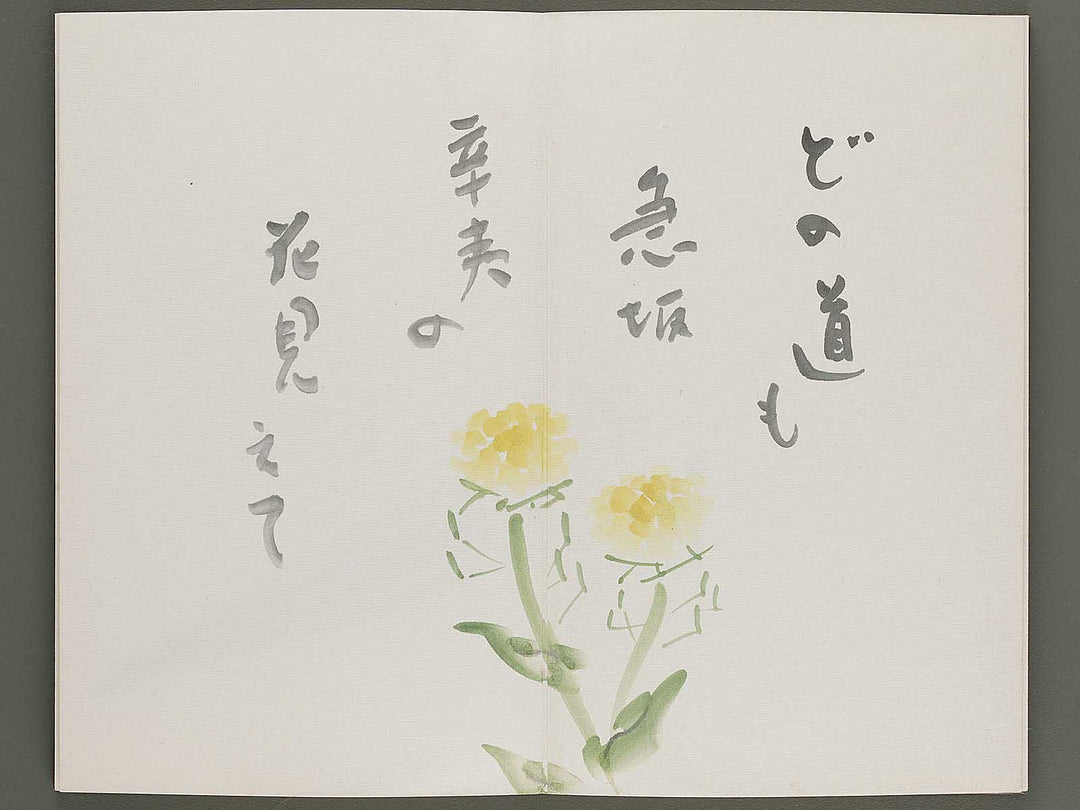 どの道も
急坂
辛夷の
花見えて